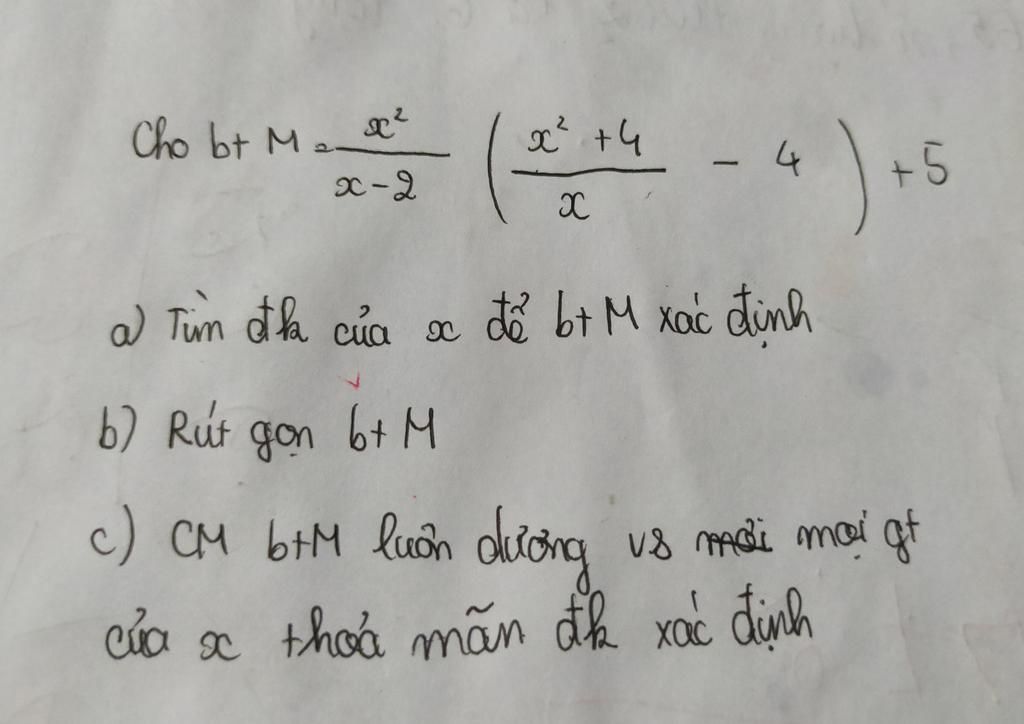 Cho bt M = x²/(x-2) ( (x²+4)/x - 4 ) + 5
a) Tìm đk của x để bt M xác định
b) Rút gọn bt M
c) CM bt M luôn dương vs mọi gt
của x thoả mãn đk xác định